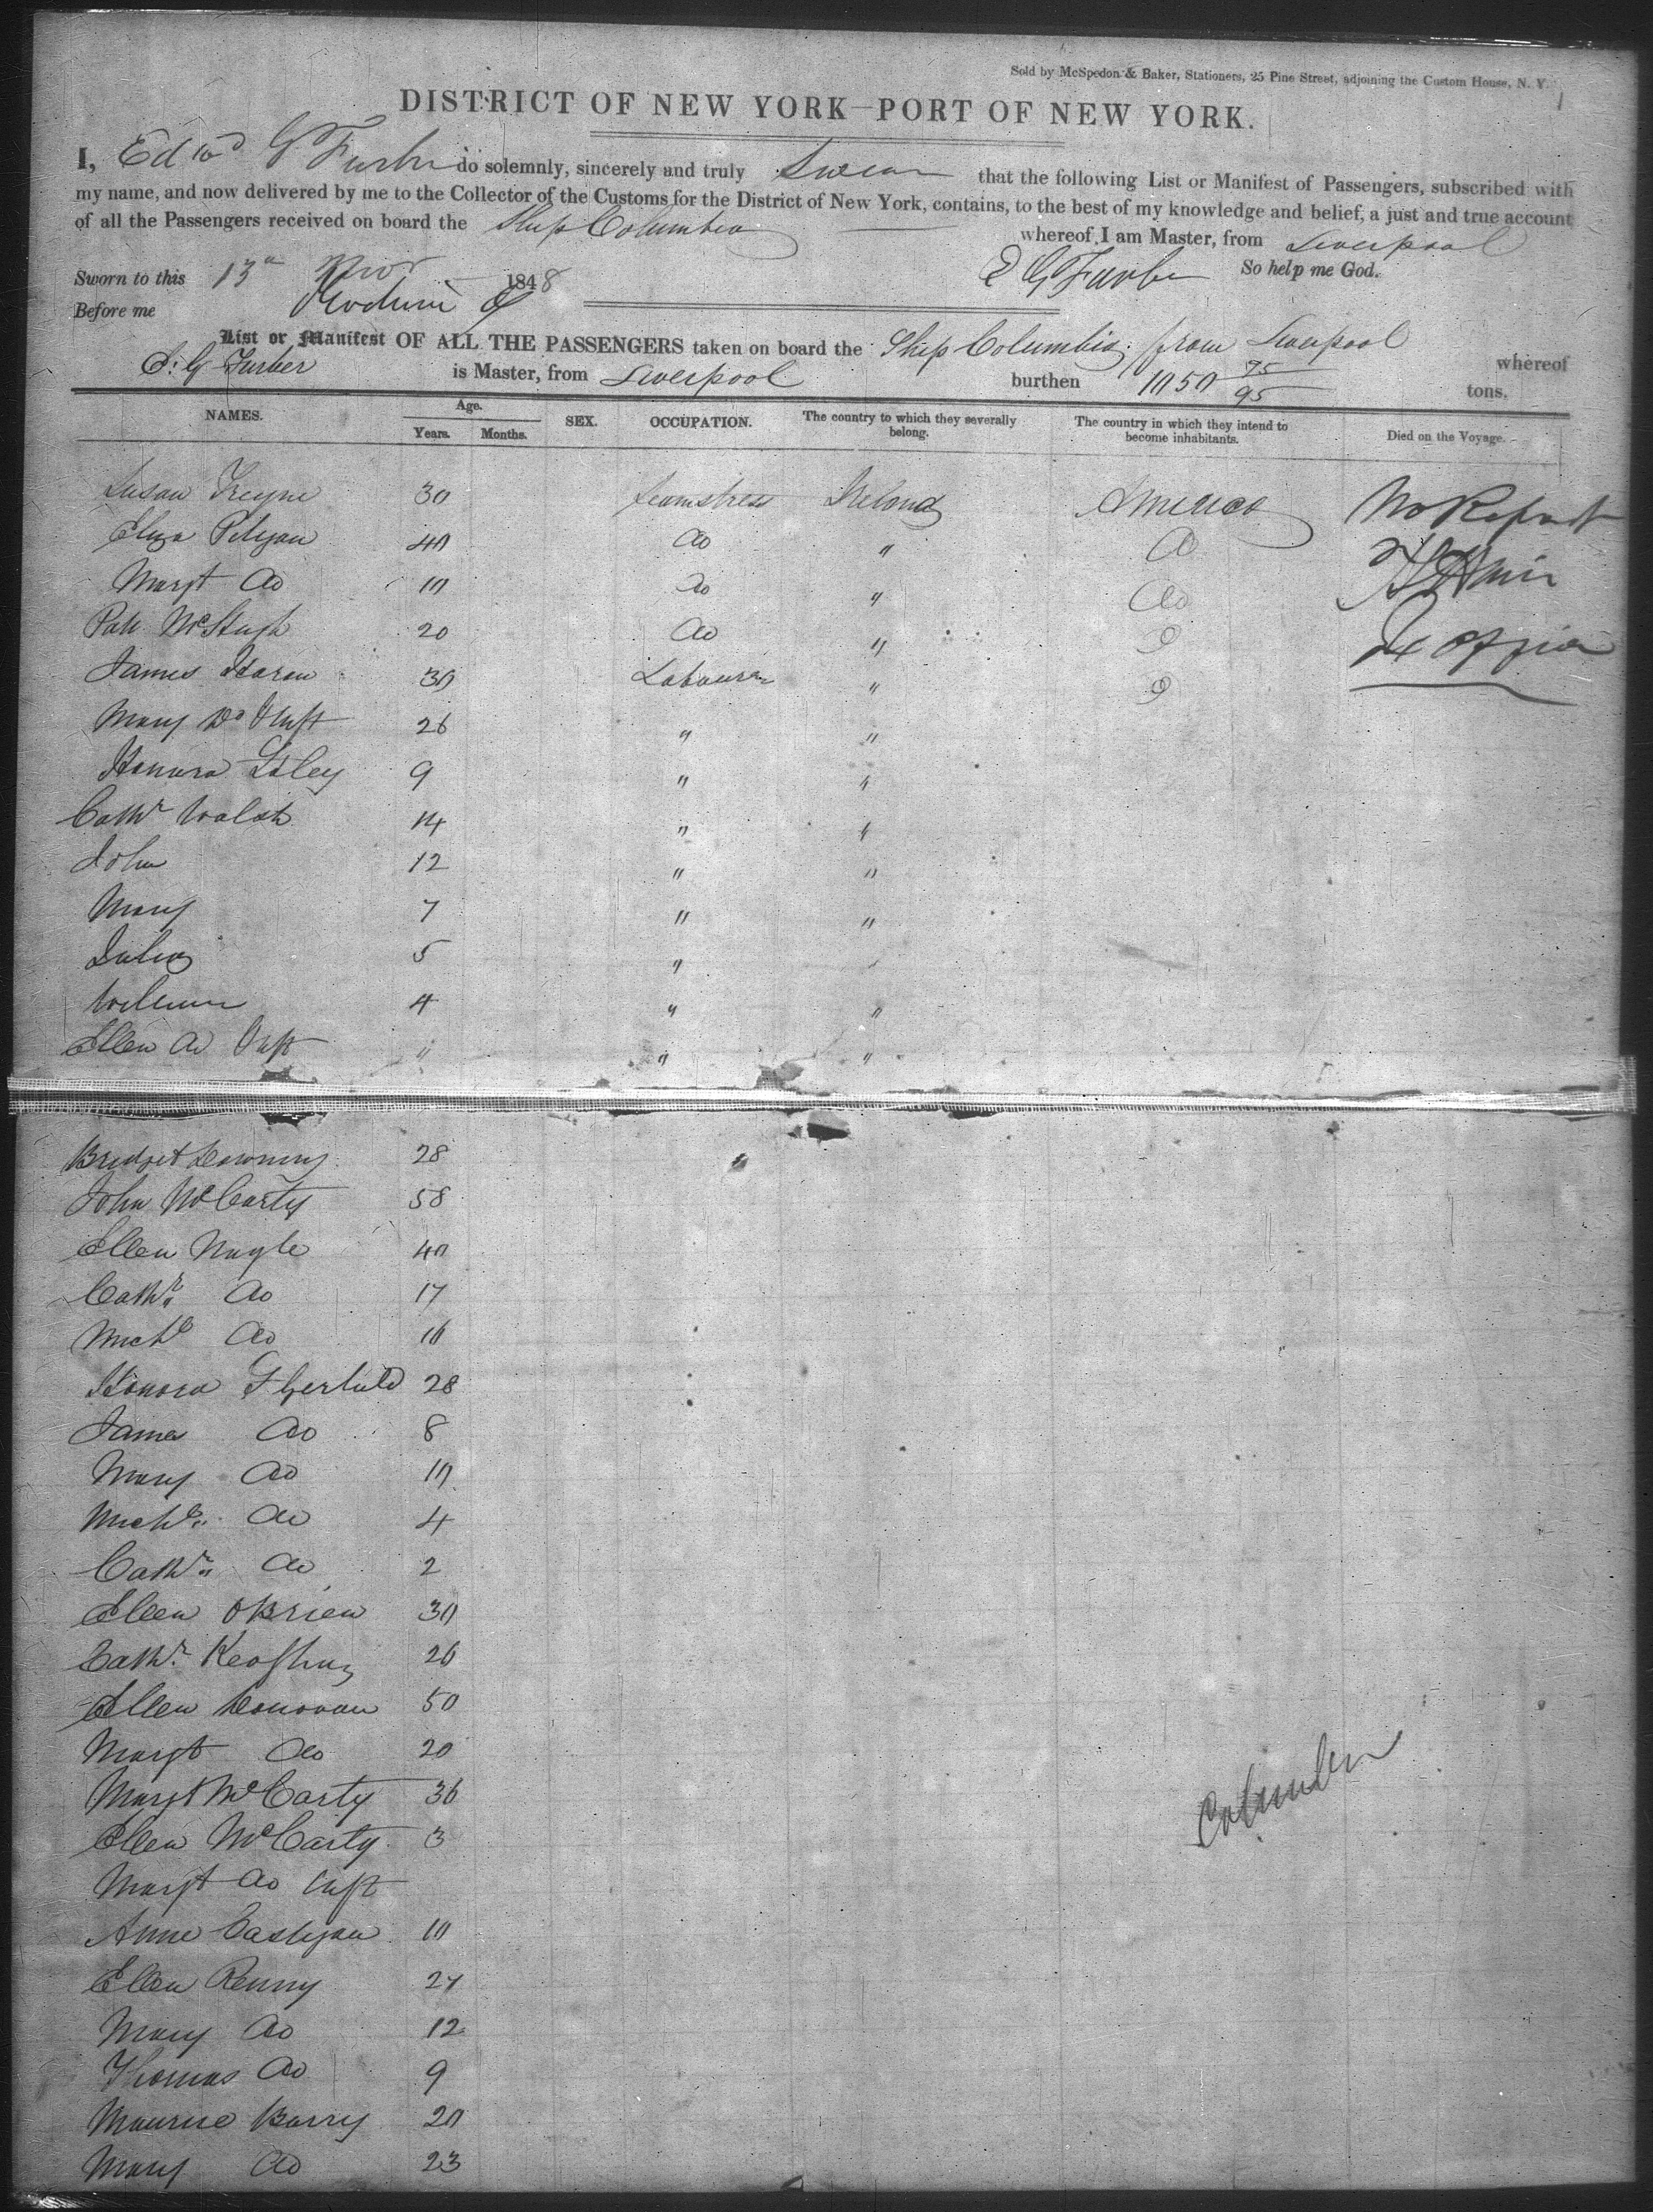 Sold by McSpedon & Baker, Stationers, 25 Pine Street, adjoining the Custom House, N. Y.
1
DISTRICT OF NEW YORK—PORT OF NEW YORK.
I, Edwd G Furber do solemnly, sincerely and truly Swear that the following List or Manifest of Passengers, subscribed with
my name, and now delivered by me to the Collector of the Customs for the District of New York, contains, to the best of my knowledge and belief, a just and true account
of all the Passengers received on board the Ship Columbia whereof I am Master, from Liverpool
Sworn to this 13th Novr 1848 E G Furber So help me God.
Before me
List or Manifest OF ALL THE PASSENGERS taken on board the Ship Columbia from Liverpool whereof
E. G Furber is Master, from Liverpool burthen 1050 75/95 tons.
NAMES. Age. Years. Months. SEX. OCCUPATION. The country to which they severally belong. The country in which they intend to become inhabitants. Died on the Voyage.
Susan Freyne 30 Seamstress Ireland America No Report
Eliza 40 do " do
Margt do 10 do " do
Patk McHugh 20 do "
James Haren 30 Labourer "
Mary Do Inft 26 " "
Honora 9 " "
Cathr Walsh 14 " "
John 12 " "
Mary 7 " "
Julia 5 " "
William 4 " "
Ellen do Inft " " "
Bridget Downing 28
John McCarty 58
Ellen Nagle 40
Cathr do 17
Michl do 16
Honora Fitzgerald 28
James do 8
Mary do 10
Michl do 4
Cathr do 2
Ellen OBrien 30
Cathr 26
Ellen Donovan 50
Margt do 20
Margt McCarty 36
Columbia
Ellen McCarty 3
Margt do Inft
Anne Castigan 10
Ellen Renny 27
Mary do 12
Thomas do 9
Maurice Barry 20
Mary do 23